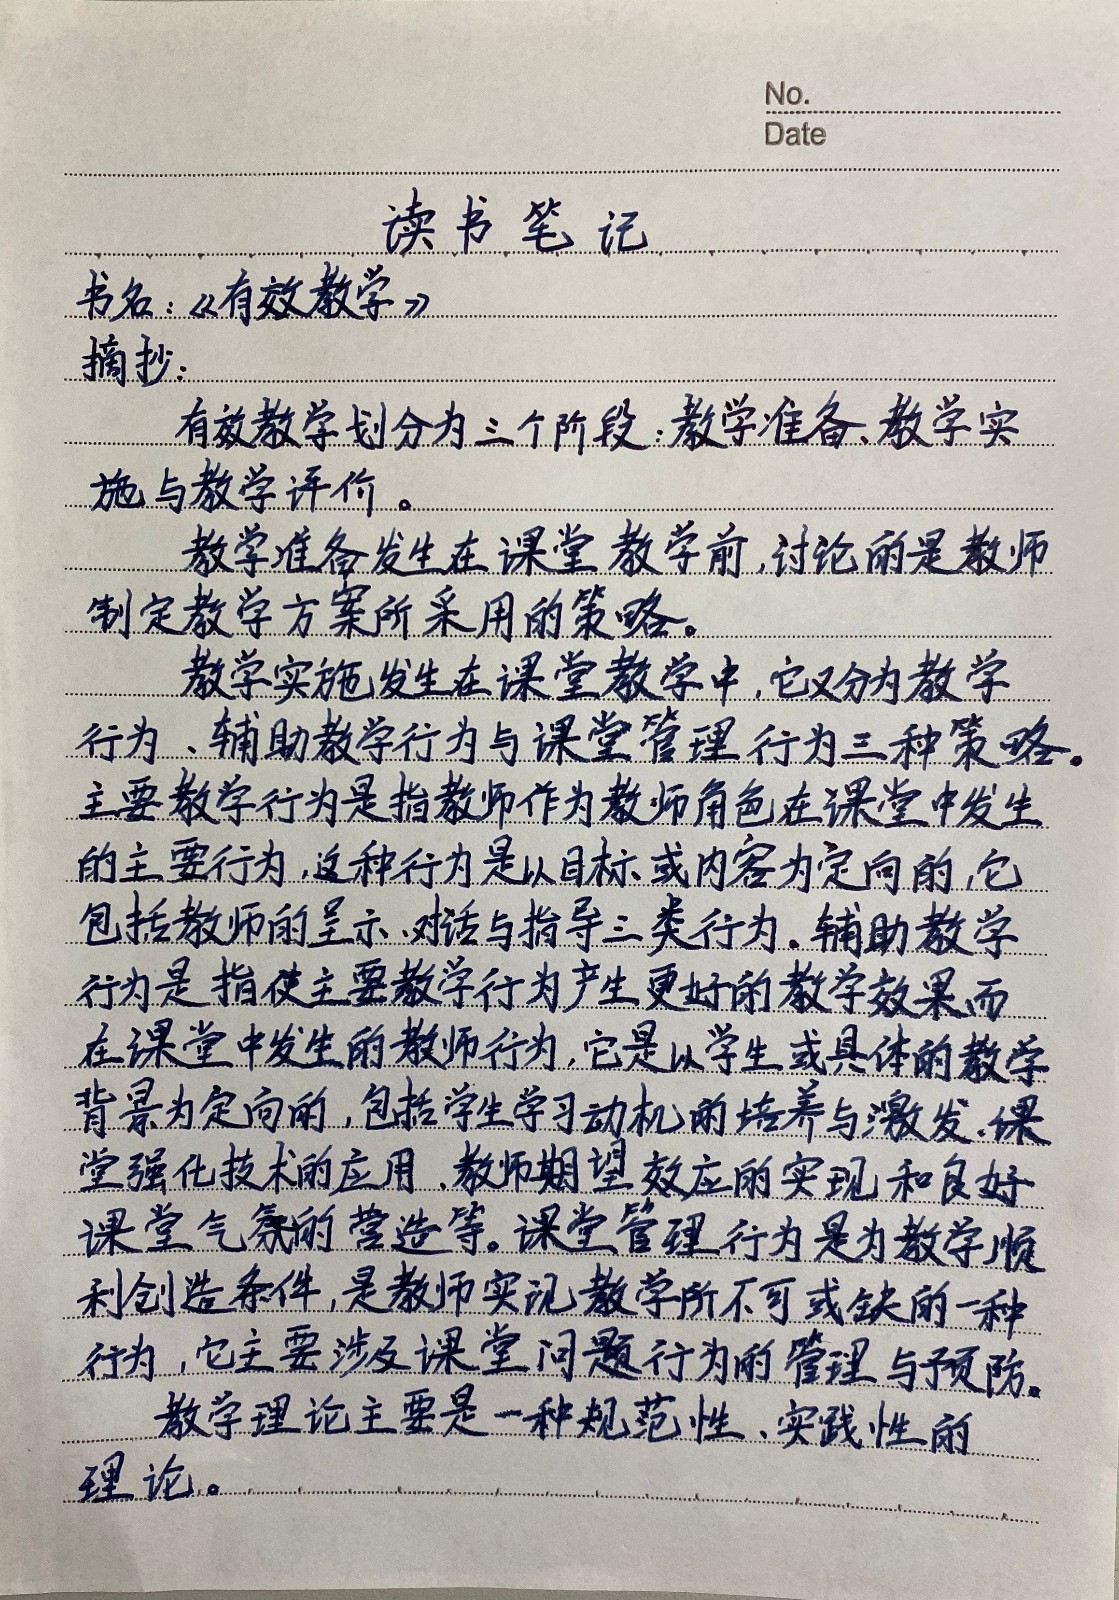 No.
Date
读书笔记
书名：《有效教学》
摘抄：
有效教学划分为三个阶段：教学准备、教学实
施与教学评价。
教学准备发生在课堂教学前，讨论的是教师
制定教学方案所采用的策略。
教学实施发生在课堂教学中，它又分为教学
行为、辅助教学行为与课堂管理行为三种策略。
主要教学行为是指教师作为教师角色在课堂中发生
的主要行为，这种行为是以目标或内容为定向的，它
包括教师的呈示、对话与指导三类行为。辅助教学
行为是指使主要教学行为产生更好的教学效果而
在课堂中发生的教师行为，它是以学生或具体的教学
背景为定向的，包括学生学习动机的培养与激发、课
堂强化技术的应用、教师期望效应的实现和良好
课堂气氛的营造等。课堂管理行为是为教学顺
利创造条件，是教师实现教学所不可或缺的一种
行为，它主要涉及课堂问题行为的管理与预防。
教学理论主要是一种规范性、实践性的
理论。